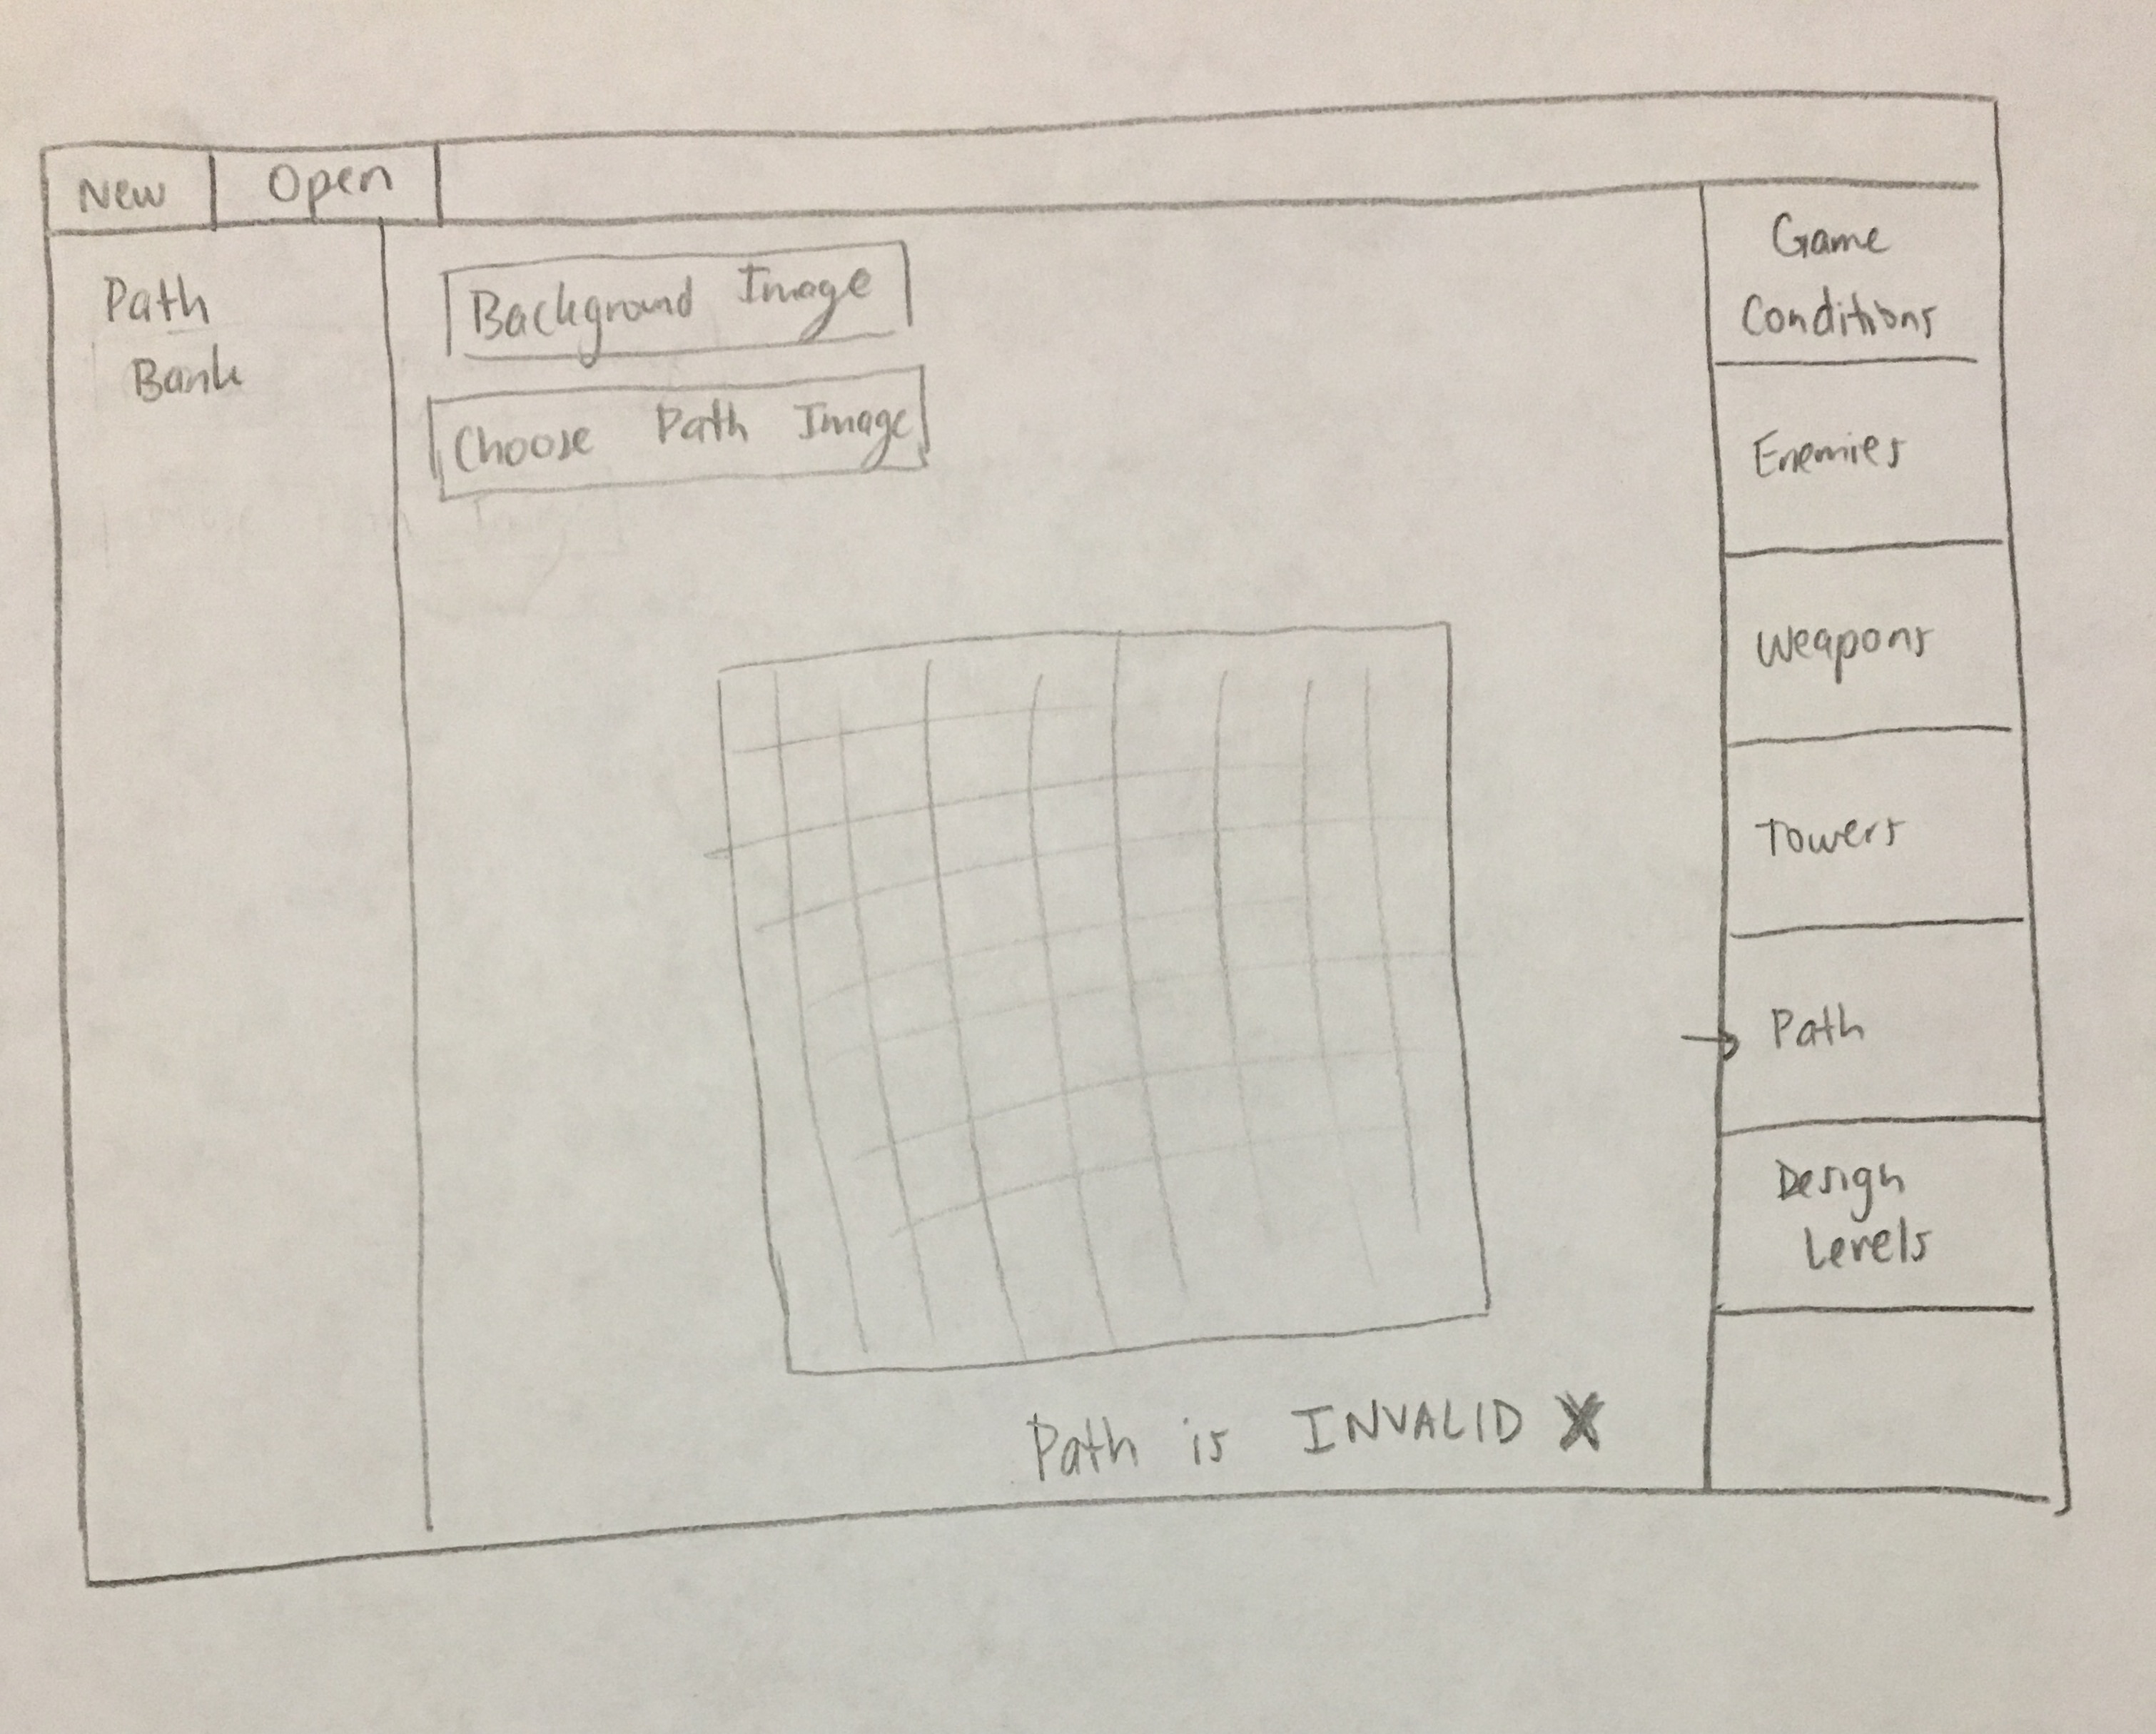 New
Open
Path
Bank
Background Image
Choose Path Image
Path is INVALID X
Game
Conditions
Enemies
Weapons
Towers
Path
Design
Levels